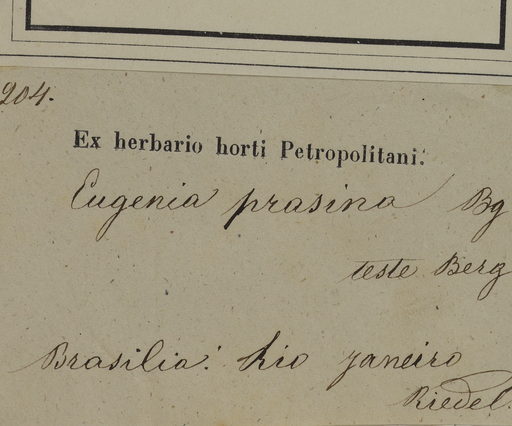 204.
Ex herbario horti Petropolitani.
Eugenia prasina Bg
teste Berg
Brasilia: Rio Janeiro
Riedel.